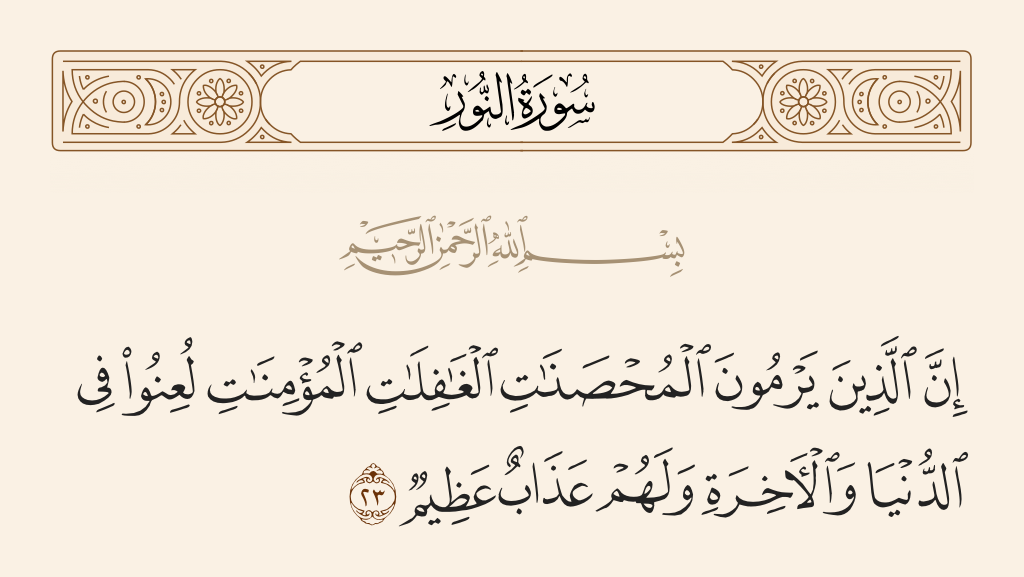 سُورَةُ النُّورِ
بِسْمِ ٱللَّهِ ٱلرَّحْمَٰنِ ٱلرَّحِيمِ
إِنَّ ٱلَّذِينَ يَرْمُونَ ٱلْمُحْصَنَٰتِ ٱلْغَٰفِلَٰتِ ٱلْمُؤْمِنَٰتِ لُعِنُوا۟ فِى
ٱلدُّنْيَا وَٱلْأَخِرَةِ وَلَهُمْ عَذَابٌ عَظِيمٌ ٢٣